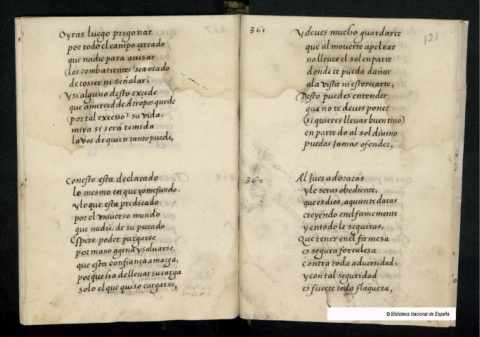 Oyras luego pregonar
por todo el campo cerrado
que nadie para auisar
los combatientes sea osado
de tosser ni señalar,
Y si alguno desto excede
que a merced de Atropos quede
por tal excesso su vida,
mira si será temida
la voz de quien tanto puede,
Con esto está declarado
lo mesmo en que yo me fundo
y lo que esta predicado
por el vniuerso mundo
que nadie de su pecado
Espere poder purgarse
por mano agena y saluarse,
que esta confiança amarga,
porque ha de lleuar su carga
solo el que quiso cargarse,
361
121
Y deues mucho guardarte
que al mouerte a pelear
no lleues el sol en parte
donde te pueda dañar
a la vista ni estoruarte,
Desto puedes entender
que no te deues poner
(si quieres lleuar buen tino)
en parte do al sol diuino
puedas jamas ofender,
362
Al Juez adorarás
y le seras obediente,
que es dios, a quien te daras
creyendo en el firmemente
y en todo le seguiras,
Que tener en el firmeza
es segura fortaleza
contra toda aduersidad,
y con tal seguridad
es fuerte toda flaqueza,
© Biblioteca Nacional de España